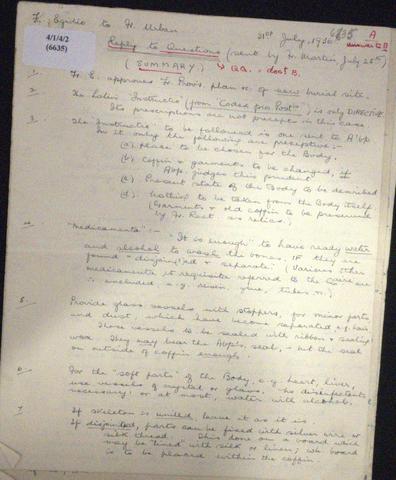 Fr. Egidio to Fr. Urban
31st July, 1930
6635
A
4/1/4/2
(6635)
Reply to Questions (sent by Fr. Martin, July 25th)
(SUMMARY) → QQ. - doct B.
1. Fr. E. approves Fr. Prov's. plan re of new burial site.
2. The Latin "Instructio" (from "Codex pro Post"), is only DIRECTIVE
Its prescriptions are not precept in this case
3. The Instructio to be followed is one sent to A'bp
In it only the following are preceptive :-
(a). Place to be chosen for the Body.
(b). Coffin & garments to be changed, if
Abp. judges this prudent
(c). Present state of the Body to be described
(d). Nothing to be taken from the Body itself
(Garments & old coffin to be preserved
by Fr. Rect as relics.)
4. "Medicamenta" :-
"It is enough" to have ready water
and alcohol to wash the bones, IF they are
found "disjoin'ted & separate". (Various other
medicamenta et requisita referred to the are
∴ excluded, e.g. resin, etc.)
5. Provide glass vessels, with stoppers, for minor parts
and dust, which have become separated, e.g. hair
These vessels to be sealed with ribbon & sealing
wax. They may bear the Abp's, seal, - but the seal
on outside of coffin enough.
6. For the "soft parts" of the Body, e.g. heart, liver,
use vessels of crystal or glass. - no disinfectants
necessary: or at most, water with alcohol.
7. If skeleton is united, leave it as it is
If disjointed, parts can be fixed with silver wire or
silk thread. This done on a board which
may be "lined" with silk or linen; wh. board
is to be placed within the coffin.